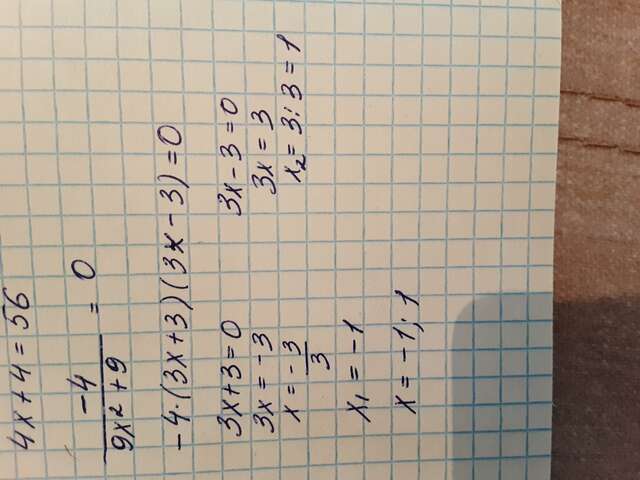 4x+4=56
-4/9x²+9 = 0
-4·(3x+3)(3x-3)=0
3x+3=0 3x-3=0
3x=-3 3x=3
x=-3/3 x₂=3:3=1
x₁=-1
x=-1; 1